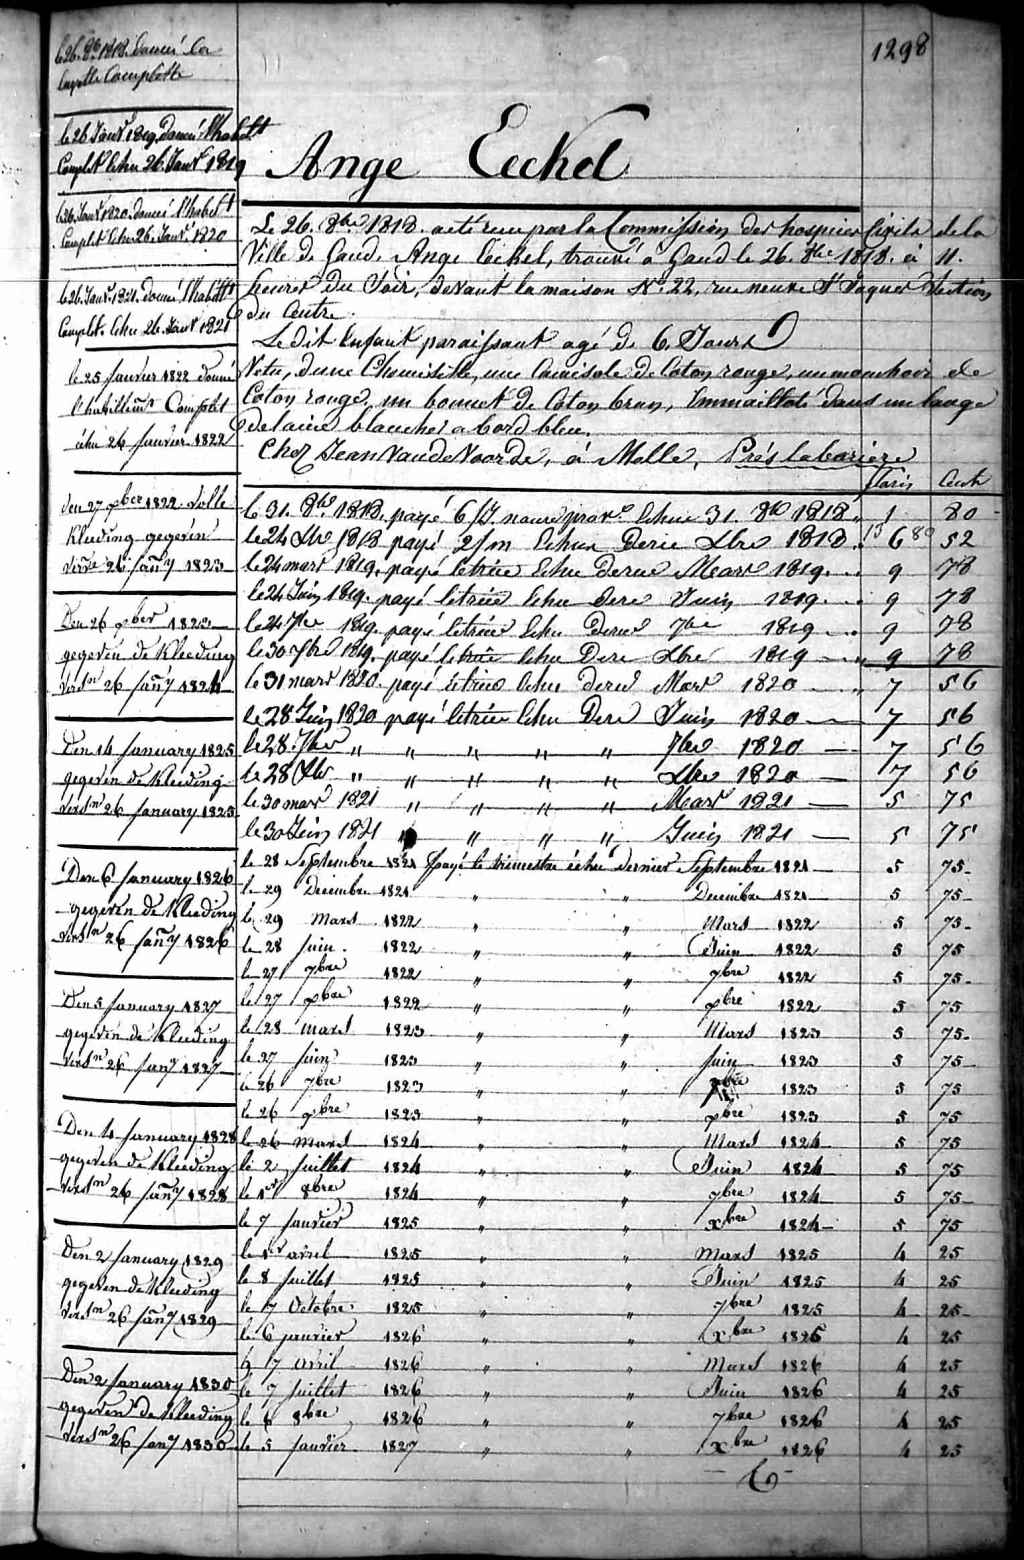 1298
le 26. 8bre 1818. donné la
layette Complette
le 26 Janvr 1819 donné l'habillt
Complet échu 26. Janvr 1819
le 26. Janvr 1820. donné l'habillt
Complet échu 26. Janvr 1820
le 26. Janvr 1821. donné l'habillt
Complet. échu 26. Janvr 1821
le 25 Janvier 1822 donné
l'habillemt Complet
échu 26 Janvier 1822
den 27 xber 1822 volle
Kleeding gegeven
26 Jany 1823
Den 26 xber 1823
gegeven de Kleeding
versn 26 Jany 1824
Den 14 January 1825
gegeven de Kleeding
versn 26 January 1825
Den 6 January 1826
gegeven de Kleeding
versn 26 Jany 1826
Den 5 January 1827
gegeven de Kleeding
versn 26 Jany 1827
Den 4 January 1828
gegeven de Kleeding
versn 26 Jany 1828
Den 2 January 1829
gegeven de Kleeding
versn 26 Jany 1829
Den 2 January 1830
gegeven de Kleeding
versn 26 Jany 1830
Ange Eeckel
Le 26. 8bre 1818. a été reçu par la Commission des hospices Civils de la
Ville de Gand. Ange Eeckel, trouvé à Gand le 26. 8bre 1818. à 11.
heures du Soir, devant la maison No. 22, rue neuve St Jaques Section
du Centre.
Le dit Enfant paraissant agé de 6 Jours
Vetu, d'une Chemisette, une Camisole de Coton rouge, un mouchoir de
Coton rouge, un bonnet de Coton brun, Emmaillotté dans un lange
de laine blanche a bord bleu.
Chez Jean Vande Voorde, à Melle, Près la bariere
florins Cents
le 31. 8bre 1818. payé 6/J nourre provre échue 31. 8bre 1818 " 1 80
le 24 Xbre 1818 payé 2/m échus Derne Xbre 1818. 13 6 80 52
le 24 mars 1819. payé letrice échu Derne Mars 1819. 9 78
le 24 Juin 1819. payé letrice échu Dere Juin 1819. 9 78
le 24 7bre 1819. payé letrice échu Derne 7bre 1819 9 78
le 30 Xbre 1819. payé letrice échu Dere Xbre 1819 9 78
le 31 mars 1820. payé letrice échu derne Mars 1820 7 56
le 28 Juin 1820 payé letrice échu Dere Juin 1820 7 56
le 28 7bre " " " " " 7bre 1820 7 56
le 28 Xbre " " " " " Xbre 1820 7 56
le 30 mars 1821 " " " " Mars 1821 5 75
le 30 Juin 1821 " " " " Juin 1821 5 75
le 28 Septembre 1821 payé le trimestre échu dernier Septembre 1821 5 75
le 29 Decembre 1821 " " Decembre 1821 5 75
le 29 Mars 1822 " " Mars 1822 5 75
le 28 Juin. 1822 " " Juin 1822 5 75
le 27 7bre 1822 " " 7bre 1822 5 75
le 27 xbre 1822 " " xbre 1822 5 75
le 28 mars 1823 " " Mars 1823 5 75
le 27 Juin 1823 " " Juin 1823 5 75
le 26 7bre 1823 " " 7bre 1823 5 75
le 26 xbre 1823 " " xbre 1823 5 75
le 26 mars 1824 " " Mars 1824 5 75
le 2 Juillet 1824 " " Juin 1824 5 75
le 1er 8bre 1824 " " 7bre 1824 5 75
le 7 Janvier 1825 " " xbre 1824 5 75
le 1er avril 1825 " " Mars 1825 4 25
le 8 Juillet 1825 " " Juin 1825 4 25
le 7 Octobre 1825 " " 7bre 1825 4 25
le 6 janvier 1826 " " xbre 1825 4 25
le 7 avril 1826 " " Mars 1826 4 25
le 7 Juillet 1826 " " Juin 1826 4 25
le 6 8bre 1826 " " 7bre 1826 4 25
le 5 Janvier 1827 " " xbre 1826 4 25